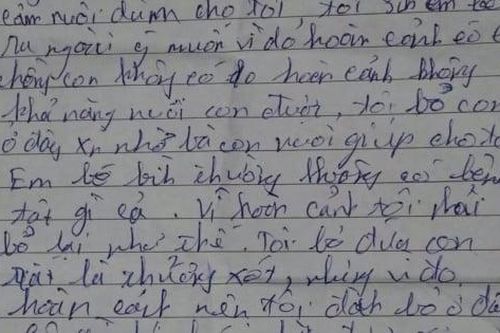 cầm nuôi dùm cho tôi, tôi xin em
người ý muốn vì do hoàn cảnh cô
chồng con không có do hoàn cảnh không
khả năng nuôi con được, tôi bỏ con
ở đây xn nhờ bà con nuôi giúp cho tô
Em bé bình thường không có bện
tật gì cả. Vì hoàn cảnh tôi phải
bỏ lại như thế. Tôi bỏ đứa con
rất là thương xót, nhưng vì do
hoàn cảnh nên tôi đành bỏ ở đâ